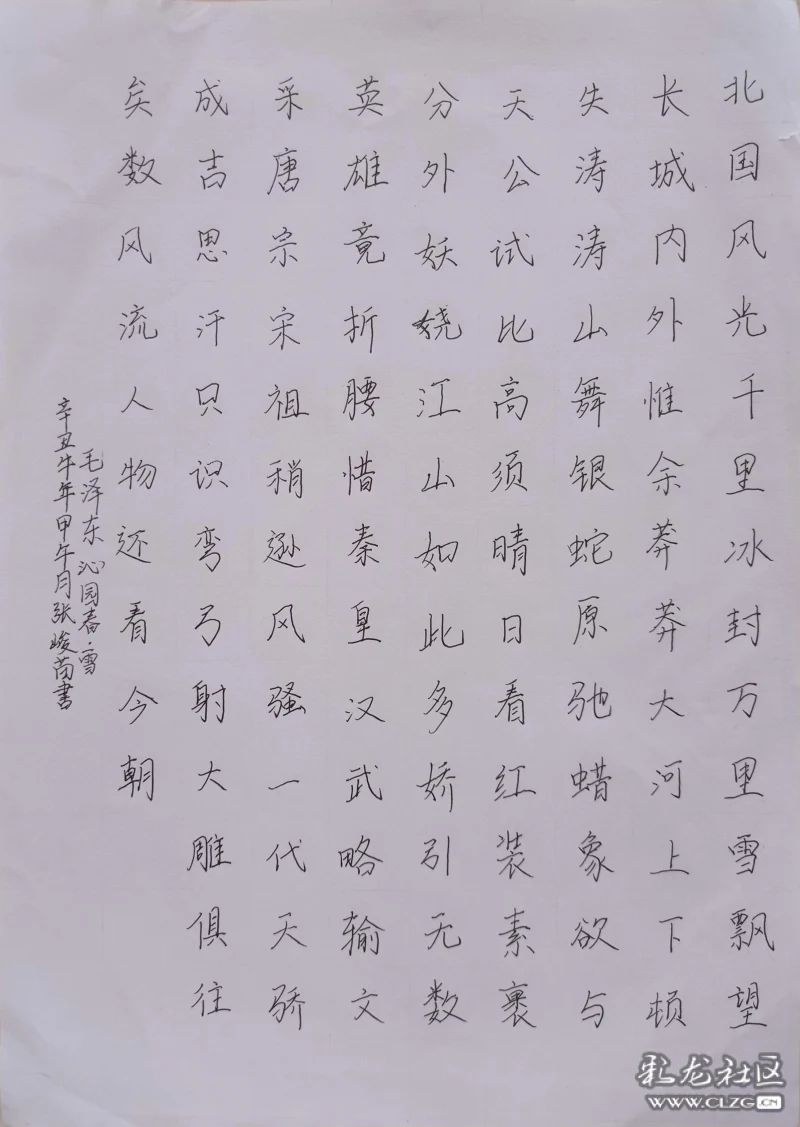 北国风光千里冰封万里雪飘望
长城内外惟余莽莽大河上下顿
失涛涛山舞银蛇原驰蜡象欲与
天公试比高须晴日看红装素裹
分外妖娆江山如此多娇引无数
英雄竟折腰惜秦皇汉武略输文
采唐宗宋祖稍逊风骚一代天骄
成吉思汗只识弯弓射大雕俱往
矣数风流人物还看今朝
毛泽东 沁园春·雪
辛丑牛年甲午月张峻書
彩龙社区
WWW.CLZG.CN